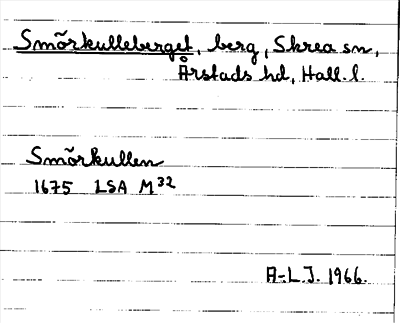 Smörkulleberget, berg, Skrea sn,
Årstads hd, Hall. l.
Smörkullen
1675 LSA M32
A-L.J. 1966.